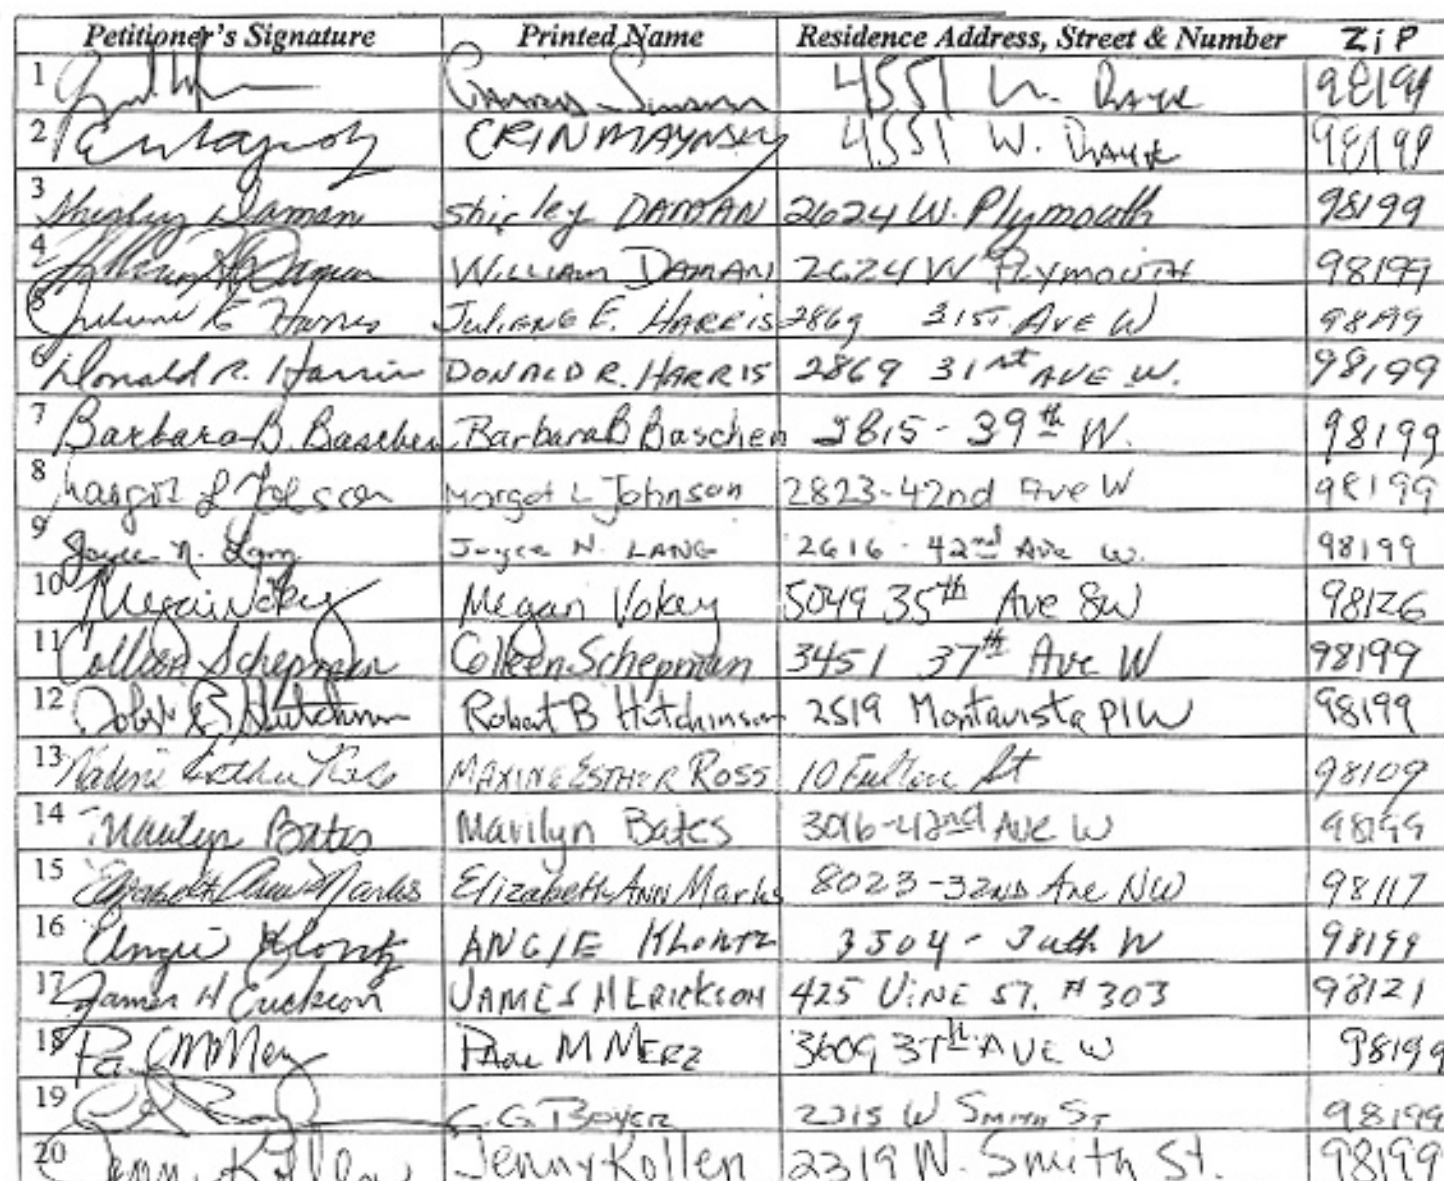 Petitioner's Signature Printed Name Residence Address, Street & Number ZiP
1 4551 W. 98199
2 ERIN 4551 W. 98199
3 Shirley Daman Shirley DAMAN 2624 W. Plymouth 98199
4 WILLIAM DAMAN 2624 W PLYMOUTH 98199
5 Juliene E Harris JULIENE E. HARRIS 2869 31ST AVE W 98199
6 Donald R. Harris DONALD R. HARRIS 2869 31st AVE W. 98199
7 Barbara B. Baschen Barbara B Baschen 2815 - 39th W. 98199
8 Margot L Johnson Margot L Johnson 2823-42nd Ave W 98199
9 Joyce N. Lang Joyce N. LANG 2616 - 42nd Ave W. 98199
10 Megan Vokey Megan Vokey 5049 35th Ave SW 98126
11 Colleen Schepman Colleen Schepman 3451 37th Ave W 98199
12 Robert B Hutchinson Robert B Hutchinson 2519 Montavista Pl W 98199
13 Esther Ross MAXINE ESTHER ROSS 10 Fulton St 98109
14 Marilyn Bates Marilyn Bates 3016-42nd Ave W 98199
15 Elizabeth Ann Marks Elizabeth ANN Marks 8023-32ND Ave NW 98117
16 Angie Klontz ANGIE KLONTZ 3504 - W 98199
17 James H Erickson JAMES H ERICKSON 425 VINE ST. #303 98121
18 Paul M Merz PAUL M MERZ 3609 37th AVE W 98199
19 C. G. BOYER 2315 W SMITH ST 98199
20 Jenny Kollen Jenny Kollen 2319 W. Smith St. 98199